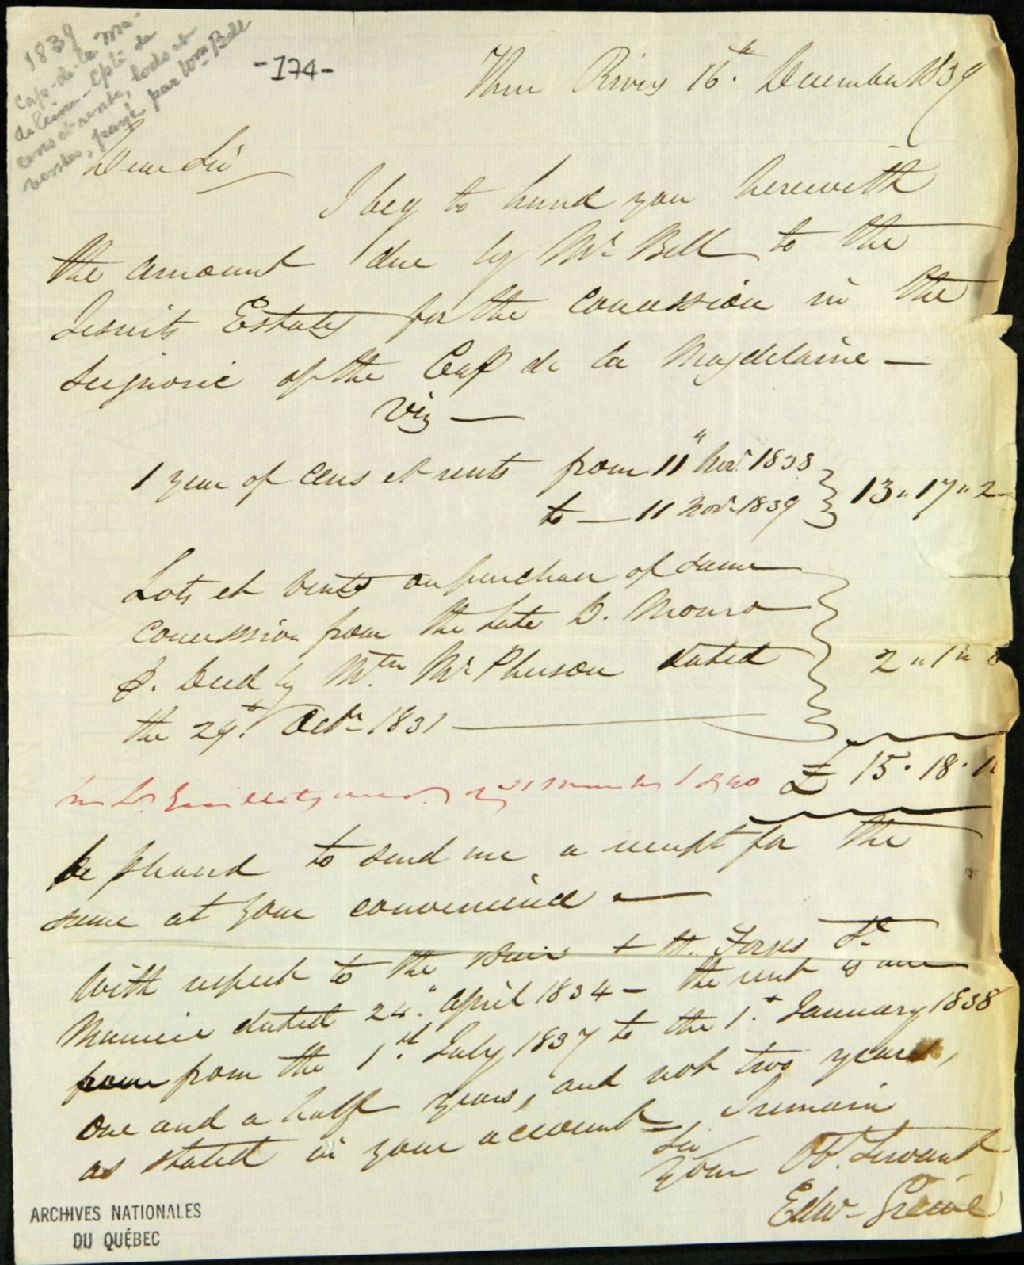 1839
Cap-de-la Ma-
deleine - Cpte de
cens et rente, lods et
ventes, payé par Wm Bell
-174-
Three Rivers 16th December 1839
Dear Sir
I beg to hand you herewith
the amount due by Mr Bell to the
Jesuits Estates for the concession in the
Seignorie of the Cap de la Magdelaine —
Viz —
1 year of cens et rents from 11th Novr 1838
to — 11 Novr 1839 } 13 " 17 " 2
Lots et Vents on purchase of same
concession from the late D. Monro
P. Deed by Mtre McPherson dated
the 29th Octr 1831 2 " 1 "
£ 15 . 18 . 1
1840
be pleased to send me a receipt for the
same at your convenience —
With respect to the St.
Maurice dated 24th April 1834 — the rent is due
from the 1st July 1837 to the 1st January 1838
One and a half years, and not two years,
as stated in your account = I remain
Sir
Your Obt Servant
Edw Greive
ARCHIVES NATIONALES
DU QUÉBEC